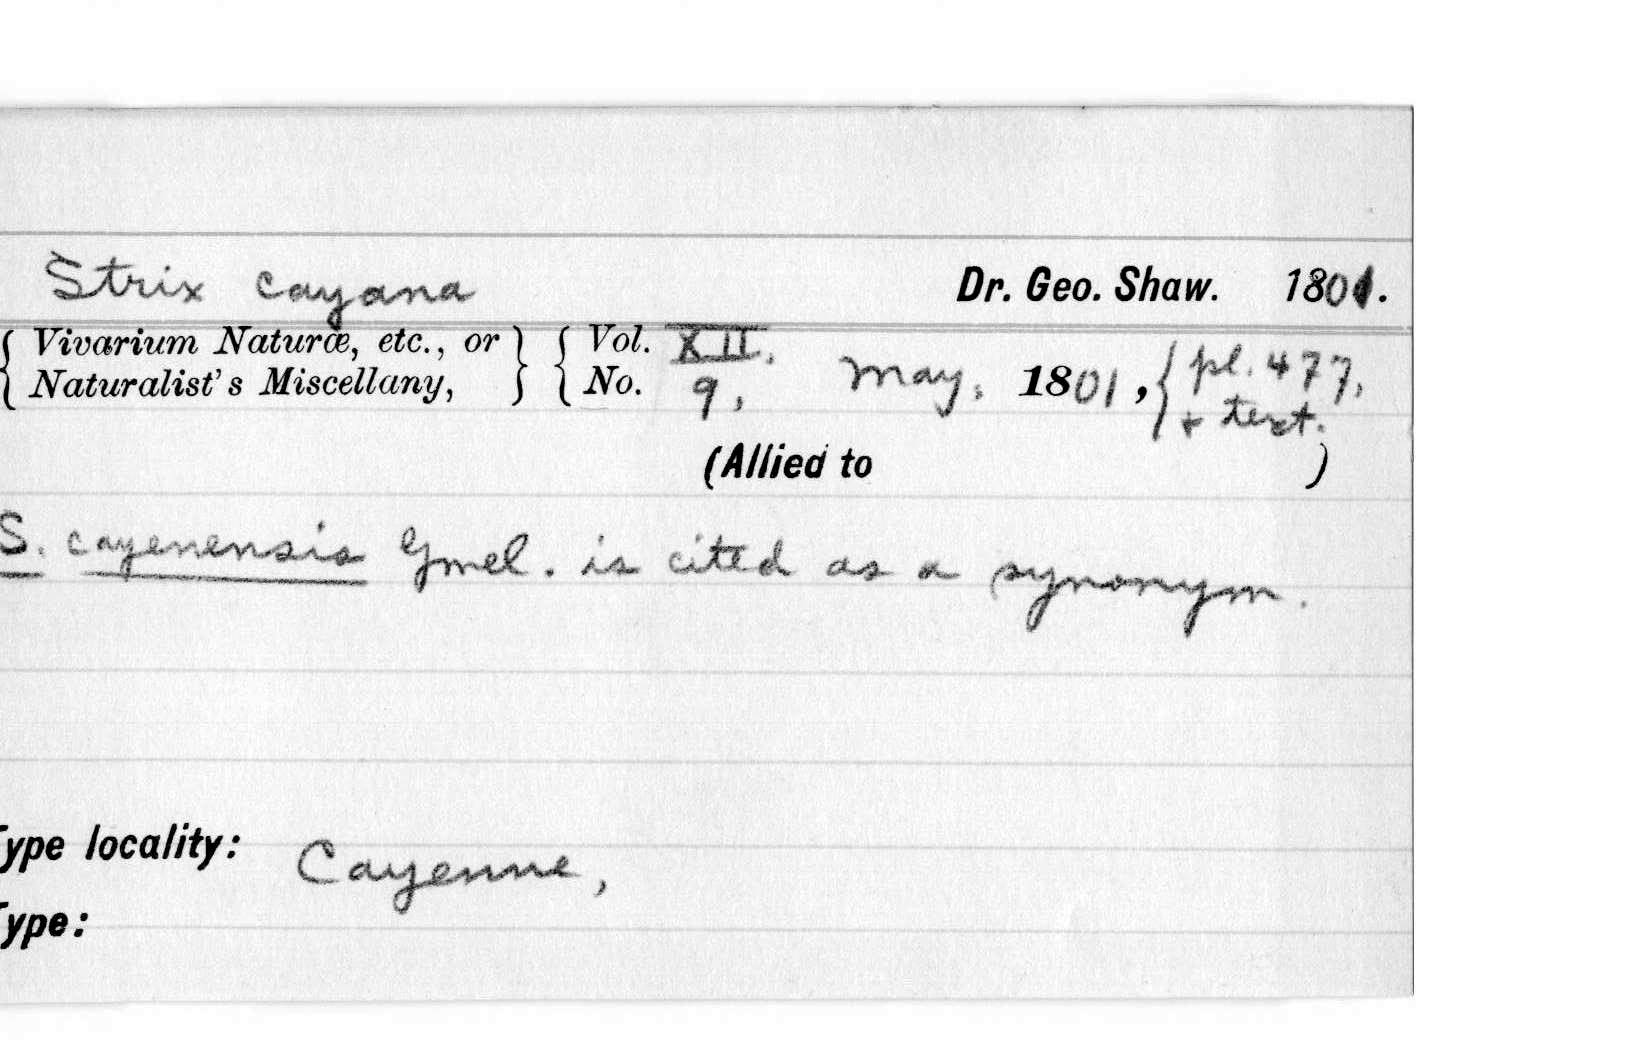 Strix cayana Dr. Geo. Shaw. 1801.
{ Vivarium Naturæ, etc., or } { Vol. XII.
{ Naturalist's Miscellany, } { No. 9, May, 1801, { pl. 477,
+ text.
(Allied to )
S. cayenensis Gmel. is cited as a synonym.
Type locality: Cayenne,
Type: